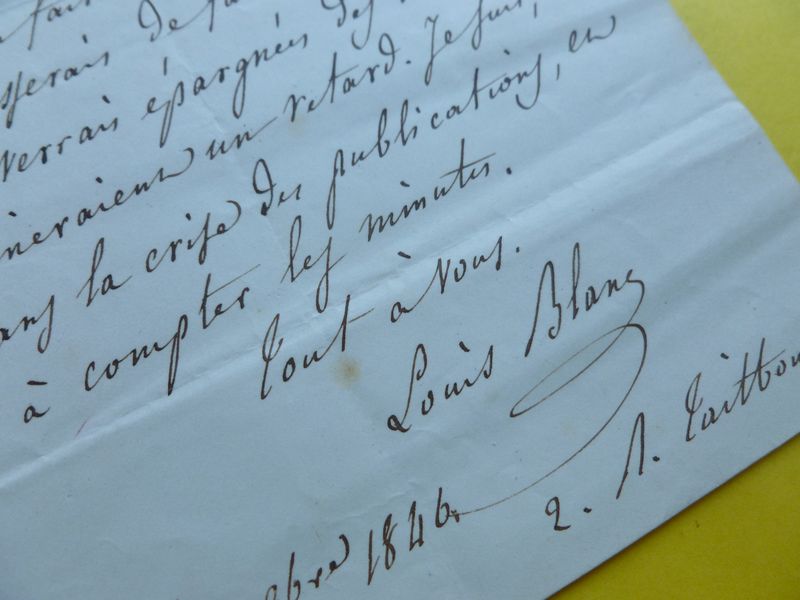 fair
sserais de fa
verrais épargnées des
neraient un retard. Je suis,
ans la crise des publications, en
à compter les minutes.
Tout à vous.
Louis Blanc
2. r. Taitbou
obre 1846.